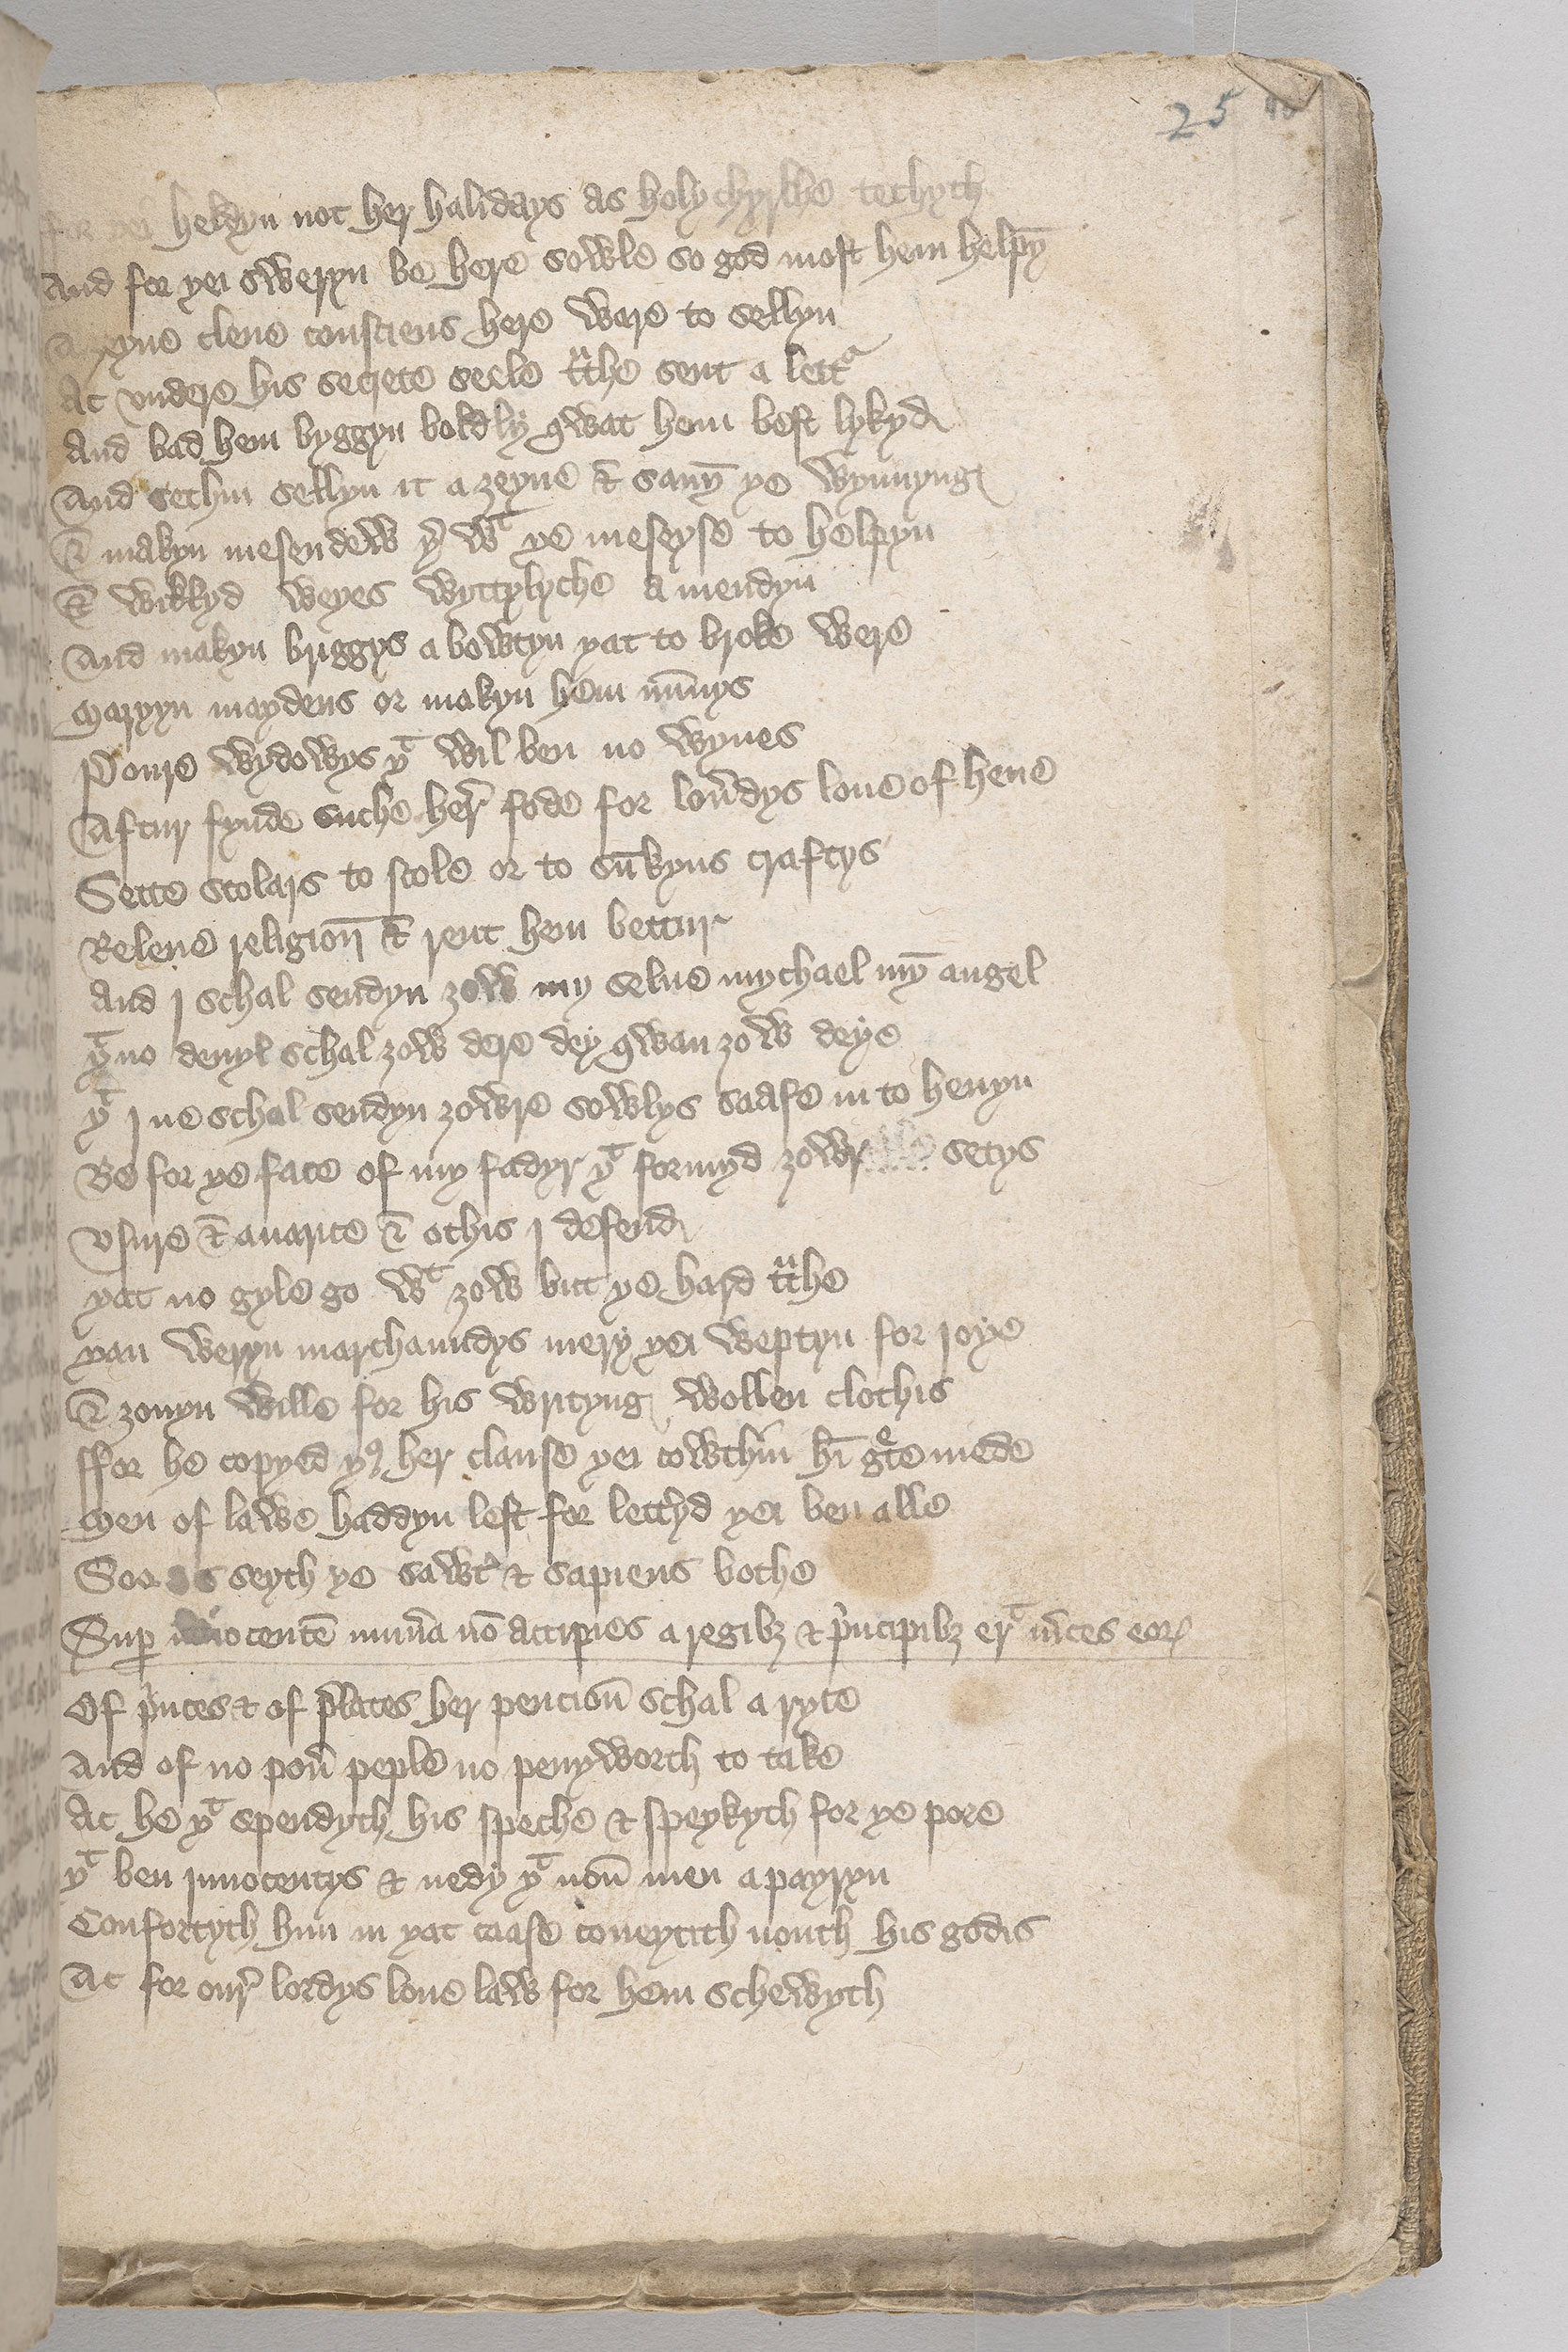 25
ffor yei heldyn not her halidays as holy chyrche techyth
And for yei sweryn be here sowle so god most hem helpyn̄
A yyne clene consciens here ware to sellyn
Ac vndere his secrete seele tͧthe sent a lettͬ
And bad hem byggyn boldly qwat hem best lykyd
And sethin sellyn it a zeyne & sauyn̄ ye wynnyng
& makyn mesendew yͬ wͭ ye meseyse to helpyn
& wikkyd weyes wyttylyche a mendyn
And makyn briggys a bowtyn yat to broke were
Maryyn maydens or makyn hem nu̅nys
Poure wydowys yͭ wil ben no wyues
Aftur fynde suche her̛ fode for lou̅dys loue of heue
Sette scolars to scole or to su̅kyns craftys
Releue religion̄ & rent hem bettur
And j schal sendyn zow my selue mychael my̅ angel
yͭ no deuyl schal zow dere dey qwan zow deye
yͭ j ne schal sendyn zowre sowlys saafe in to heuyn
Be for ye face of my fadyr yͭ formyd zowr setys
Vsure & auarice & othis j defend
yat no gyle go wͭ zow but ye hard tͧthe
yan weryn marchauntdys mery yei weptyn for joye
& zouyn wille for his writyng wollen clothis
ffor he copyed yꝰ her clause yei cowthin hī gͤte mede
Men of lawe haddyn lest for lettyd yei ben alle
So as seyth ye sawtͬ & sapiens bothe
Suꝑ in̅ocentē mun̛a nō accipies a regibꝫ & pͥncipibꝫ erͭ m̛ces eoꝝ
Of pͥnces & of p̛lates her pencion̄ schal a ryse
And of no poư peple no penyworth to take
Ac he yͭ spendyth his speche & speykyth for ye pore
yͭ ben jnnocentys & nedy yͭ non̄ men apayryn
Confortyth him in yat caase coueytith nouth his godis
Ac for our̛ lordys loue law for hem schewyth